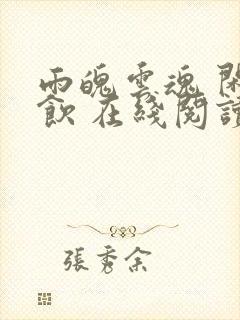 雨魄雲魂 閑
飲 在綫閱讀
張秀余